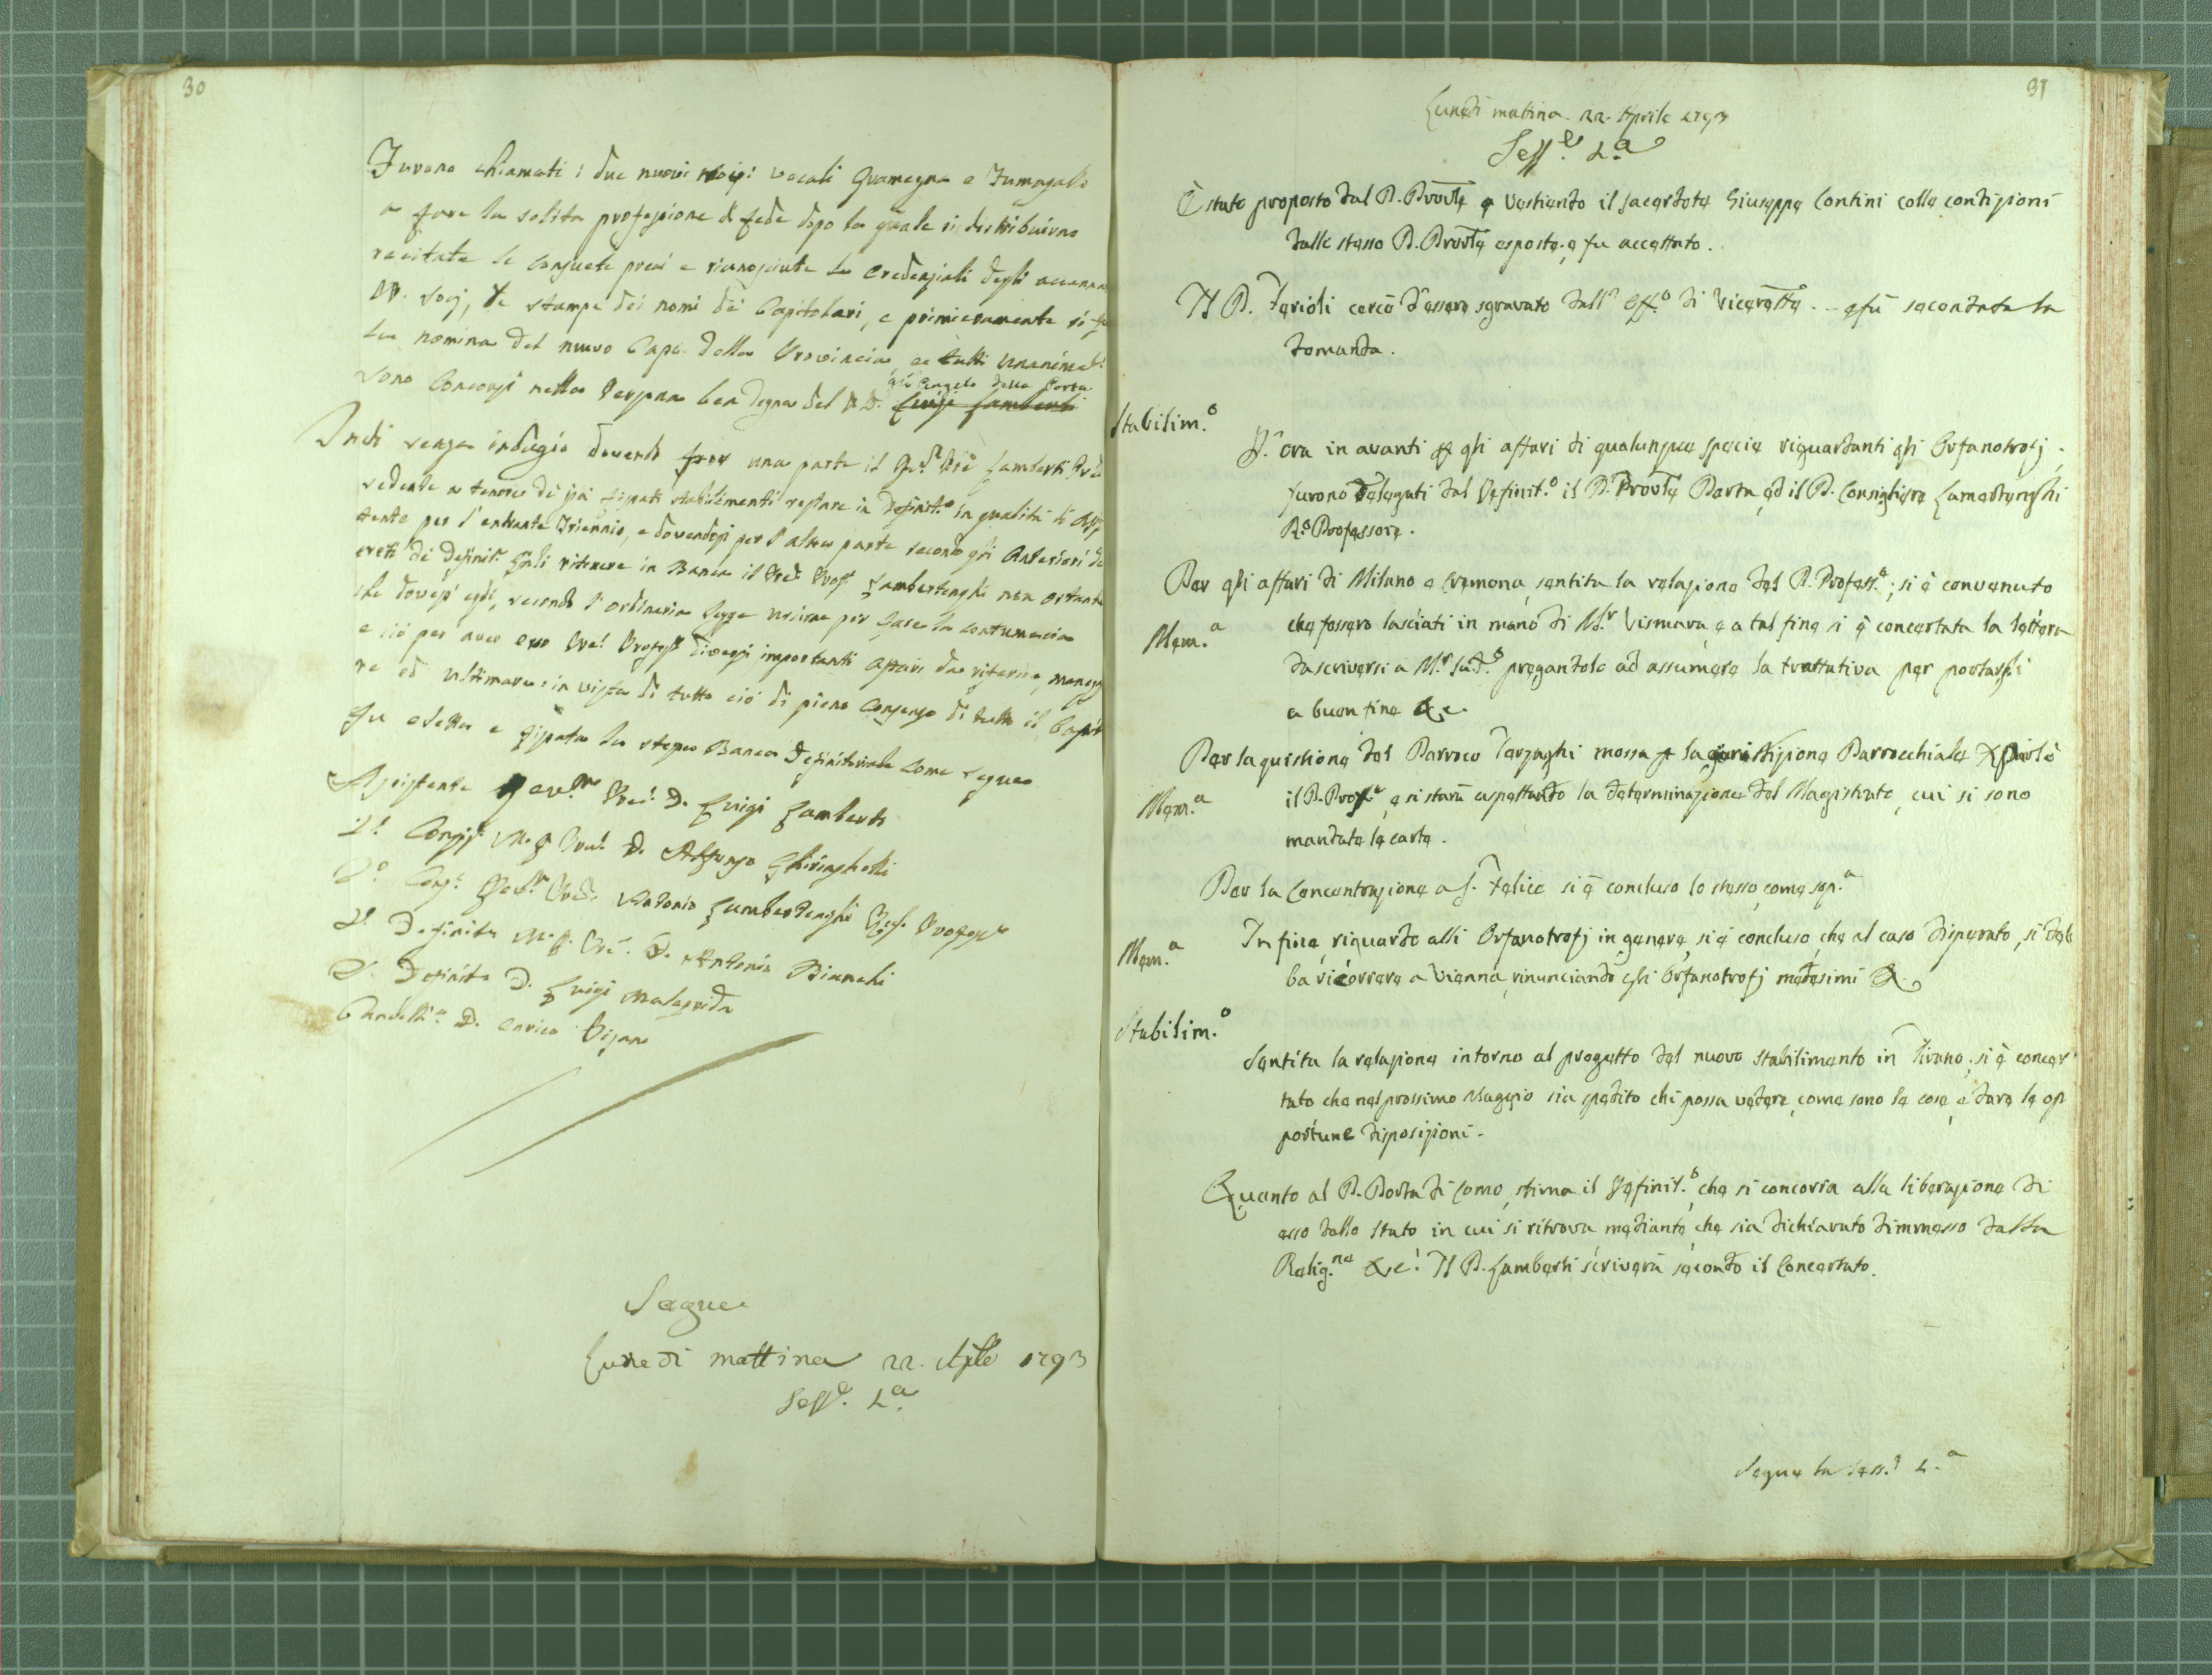 30
Furono chiamati i due nuovi vocali Guamegna e Fumagalli
a fare la solita professione di fede dopo la quale si distribuirno
recitate le consuete preci e riconosciute le Credenziali degli
PP. Socj, le stampe dei nomi de' Capitolari, e primieramente si
la nomina del nuovo Capo della Provincia, e tutti
sono Concorsi nella Persona ben degna del P. D. Luigi Lamberti
Angelo della Porta
Indi senza indugio dovendo per una parte il Lamberti
cedente a tenore di già fissati stabilimenti restare in Definit.o in qualità di
tente per l'entrante Triennio, e dovendosi per l'altra parte secondo gli Anteriori
creti dei Definit.ri ritenere in Banca il Lambertenghi non ostante
che dovesse egli, secondo l'ordinaria legge uscirne per la contumacia
e ciò per aver esso diversi importanti Affari da riferire,
re ed ultimare: in vista di tutto ciò di pieno Consenso di tutto il
fu eletta e fissata la stessa Banca Definitoriale come segue
Assistente D. Luigi Lamberti
1.o D. Alfonso Ghiringhelli
2.o Antonio Lambertenghi
1.o Definit. D. Antonio Bianchi
2.o Definit. D. Luigi Malagrida
D. Enrico Pisani
Segue
Lunedì mattina 22. Aple 1793
Sess.e 2.a
31
Lunedi mattina. 22. Aprile 1793
Sess.e 2.a
È stato proposto dal P. Provle a Vestiando il Sacerdote Giuseppe Contini colle condizioni
dallo stesso P. Provle esposte; e fu accettato.
Il P. Ferioli cercò d'essere sgravato dall' Off.o di Vicerette.. e fù secondata la
domanda.
Stabilim.o
P. ora in avanti p gli affari di qualunque specie riguardanti gli Orfanotrofj
furono delegati dal Definit.o il P. Provle Porta, ed il P. Consigliere Lambertenghi
R.o Professore.
Per gli affari di Milano e Cremona, sentita la relazione del P. Profess.e; si è convenuto
Mem.a
che fossero lasciati in mano di M.r Vismara, e a tal fine si è concertata la lettera
da scriversi a M.r Sud.o pregandolo ad assumere la trattativa per portarli
a buon fine &c.
Per la quistione del Parroco Terzaghi mossa p la giurisdizione Parrocchiale
Mem.a
il P. e si starà aspettando la determinazione del Magistrato, cui si sono
mandate le carte.
Per la Concentrazione a S. Felice si è concluso lo stesso, come sop.a
Mem.a
In fine, riguardo alli Orfanotrofj in genere, si è concluso, che al caso disperato, si deb
ba ricorrere a Vienna, rinunciando gli Orfanotrofj medesimi &.
Stabilim.o
Sentita la relazione intorno al progetto del nuovo stabilimento in Tirano; si è concer
tato che nel prossimo Maggio sia spedito chi possa vedere, come sono le cose, e dare le op
portune disposizioni.
Quanto al P. Porta di Como, stima il Definit.o, che si concorra alla liberazione di
esso dallo Stato in cui si ritrova mediante, che sia dichiarato dimmesso dalla
Relig.ne &c. Il P. Lamberti scriverà secondo il Concertato.
Segue la Sess.e 2.a